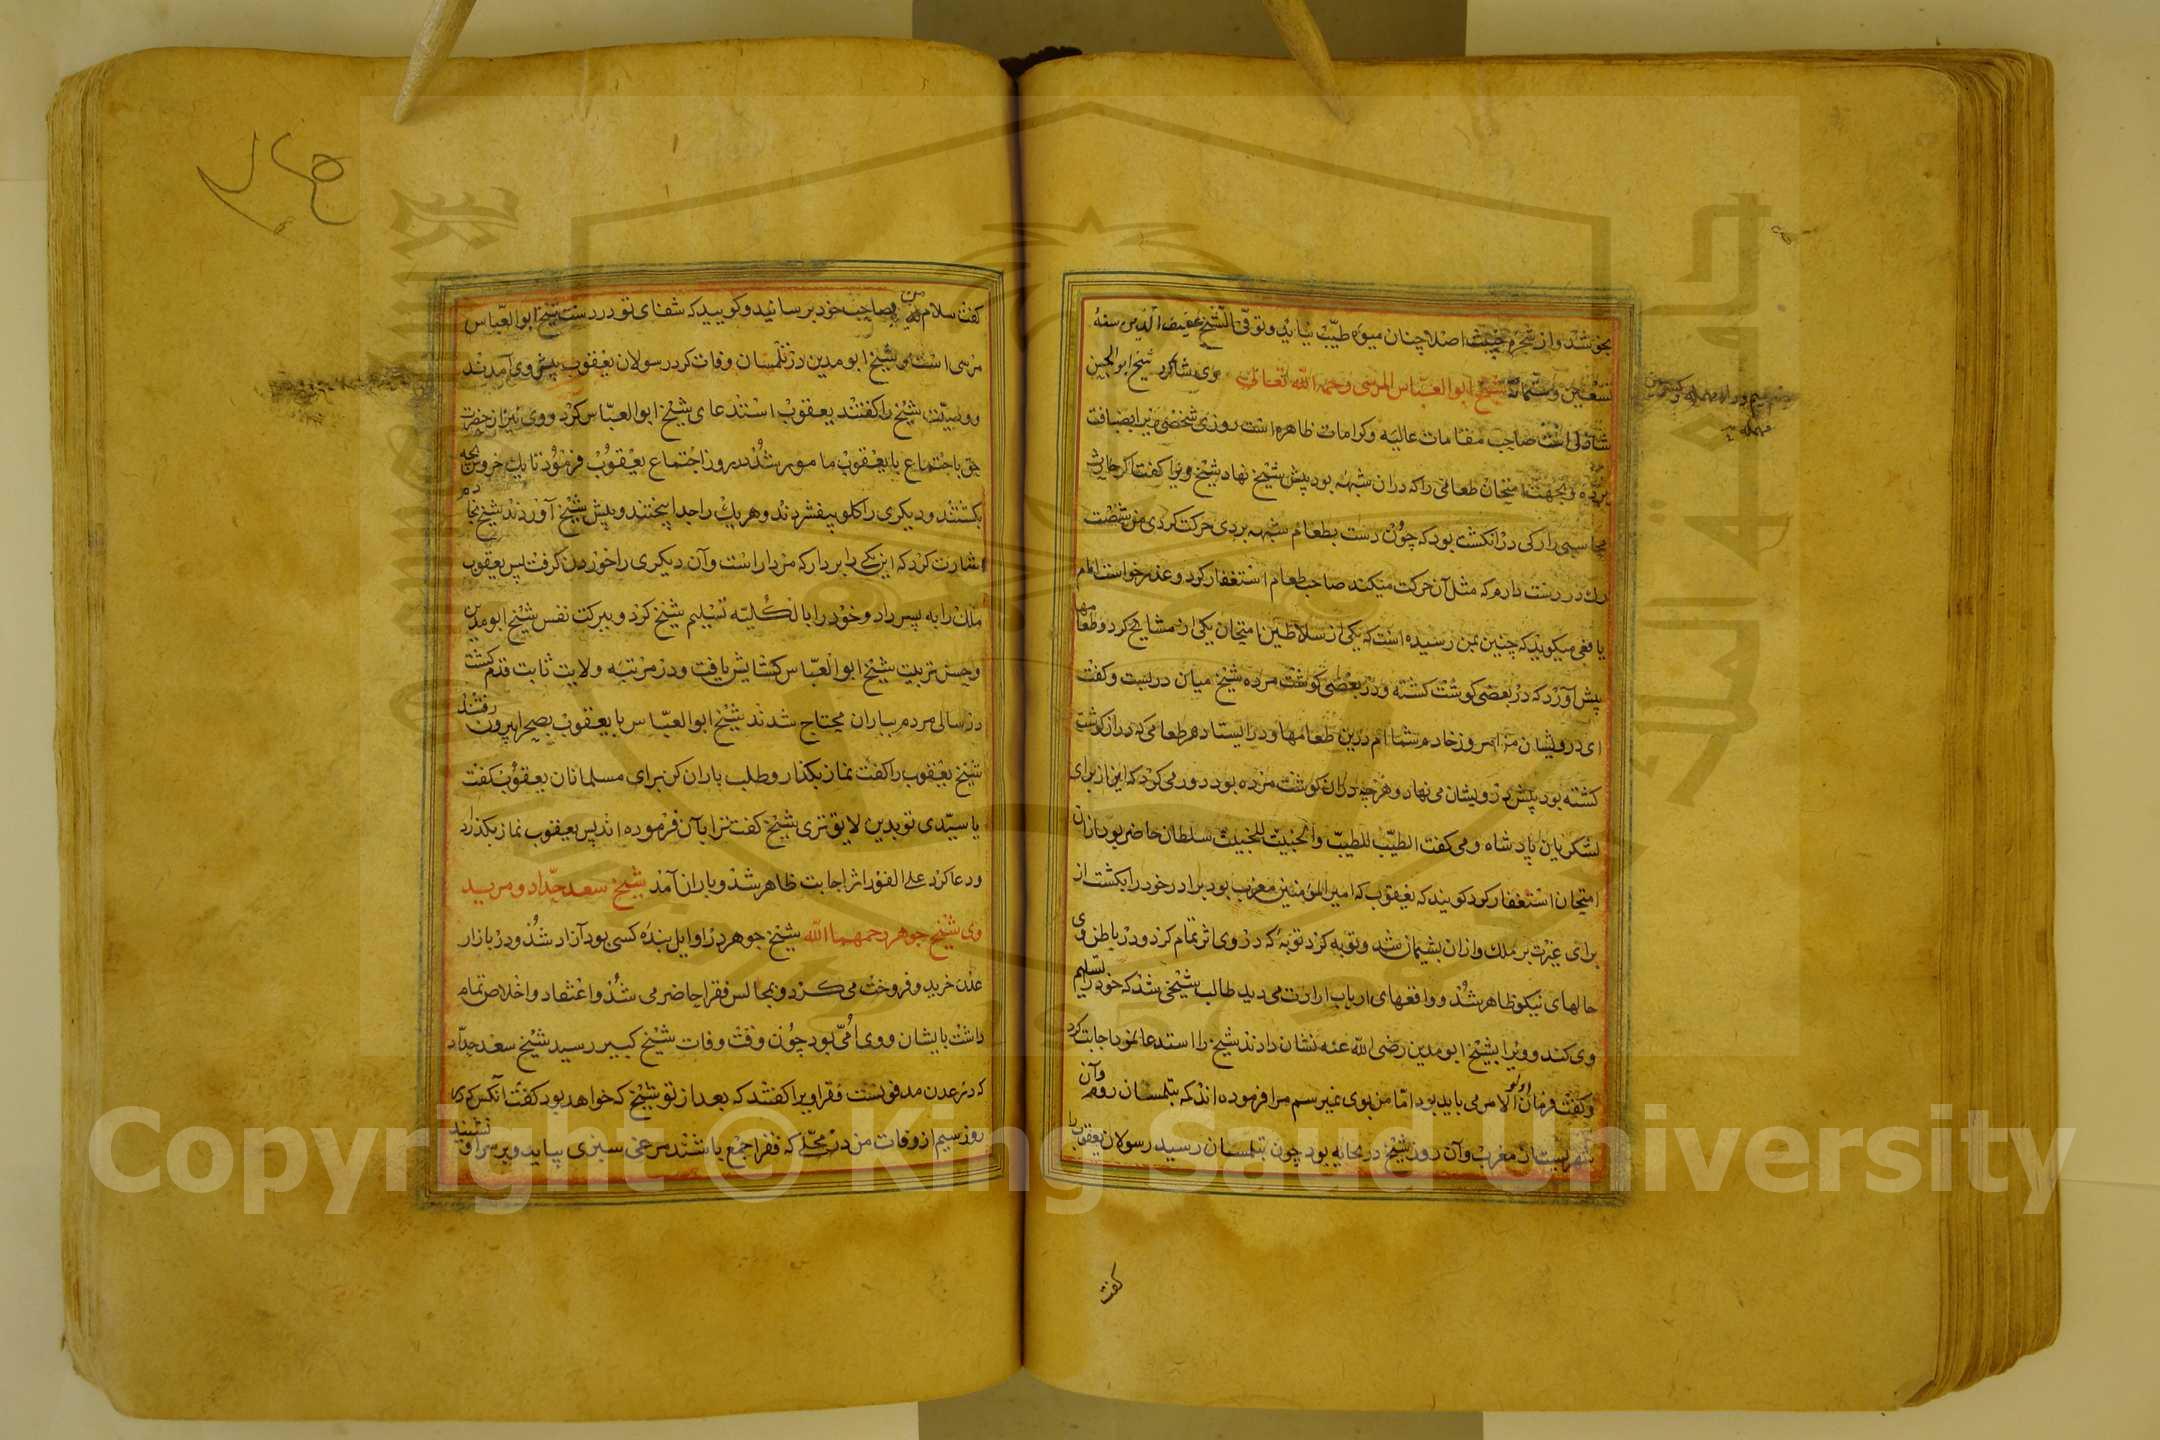 بخوشد و از شجره خبیث اصلا چنان میوه طیب نیاید و توفی الشیخ عفیف الدین سنه
تسعین و ستمائه شیخ ابوالعباس المرسی رحمه الله تعالی وی شاگرد شیخ ابوالحسن
شاذلی است صاحب مقامات عالیه و کرامات ظاهره است روزی شخصی ویرا بضیافت
برده و بجهت امتحان طعامی را که در ان شبهه بود پیش شیخ نهاد شیخ ویرا کفت اکر حارث
محاسبی را رکی در انکشت بود که چون دست بطعام شبهه بردی حرکت کردی من شصت
رک در دست دارم که مثل آن حرکت میکند صاحب طعام استغفار کرد و عذر خواست امام
یافعی میکوید که چنین بمن رسیده است که یکی از سلاطین امتحان یکی از مشایخ کرد و طعامها
پیش آورد که در بعضی کوشت کشته و در بعضی کوشت مرده شیخ میان در بست و کفت
ای درویشان من امروز خادم شما ام درین طعامها و در ایستاد هر طعامی که در ان کوشت
کشته بود پیش درویشان می نهاد و هرچه در ان کوشت مرده بود دور می کرد که این از برای
لشکریان پادشاه و می کفت الطیب للطیب و الخبیث للخبیث سلطان حاضر بود از ان
امتحان استغفار کرد کویند که یعقوب که امیرالمؤمنین مغرب بود برادر خود را بکشت از
برای غیرت بر ملک و ازان پشیمان شد و توبه کرد توبهٔ که در وی اثر تمام کرد و در باطن وی
حالهای نیکو ظاهر شد و واقعهای ارباب ارادت می دید طالب شیخی شد که خود را تسلیم
وی کند و ویرا بشیخ ابومدین رضی الله عنه نشان دادند شیخ را استدعا نمود اجابت کرد
و کفت فرمان اولو الامر می باید بود اما من بوی نمیرسم مرا فرموده اند که بتلمسان روم و آن
شهریست از مغرب و آن روز شیخ در بجایه بود چون بتلمسان رسید رسولان یعقوب را
کفت
کفت سلام من بصاحب خود برسانید و کویید که شفای تو در دست شیخ ابوالعباس
مرسی است و شیخ ابومدین در تلمسان وفات کرد رسولان یعقوب پیش وی آمدند
و وصیت شیخ را کفتند یعقوب استدعای شیخ ابوالعباس کرد و وی نیز از حضرت
حق باجتماع با یعقوب مامور شد در روز اجتماع یعقوب فرمود تا یک خروس بچه
بکشتند و دیکری را کلو بیفشردند و هر یک را جدا پختند و پیش شیخ آوردند شیخ بخادم
اشارت کرد که این یکی را بردار که مردار است و آن دیکری را خوردن کرفت پس یعقوب
ملک را به پسر داد و خود را بالکلیه تسلیم شیخ کرد و ببرکت نفس شیخ ابومدین
و حسن تربیت شیخ ابوالعباس کشایش یافت و در مرتبه ولایت ثابت قدم کشت
در سالی مردم بباران محتاج شدند شیخ ابوالعباس با یعقوب بصحرا بیرون رفتند
شیخ یعقوب را کفت نماز بکذار و طلب باران کن برای مسلمانان یعقوب کفت
یا سیدی تو بدین لایق تری شیخ کفت ترا بآن فرموده اند پس یعقوب نماز بکذارد
و دعا کرد علی الفور اثر اجابت ظاهر شد و باران آمد شیخ سعد حداد و مرید
وی شیخ جوهر رحمهما الله شیخ جوهر در اوایل بندهٔ کسی بود آزاد شد و در بازار
عدن خرید و فروخت می کرد و بمجالس فقرا حاضر می شد و اعتقاد و اخلاص تمام
داشت بایشان و وی امی بود چون وقت وفات شیخ کبیر رسید شیخ سعد حداد
که در عدن مدفونست فقرا ویرا کفتند که بعد از تو شیخ که خواهد بود کفت آنکس که در
روز سیم از وفات من در محلی که فقرا جمع باشند مرغی سبزی بیاید و بر سر او نشیند